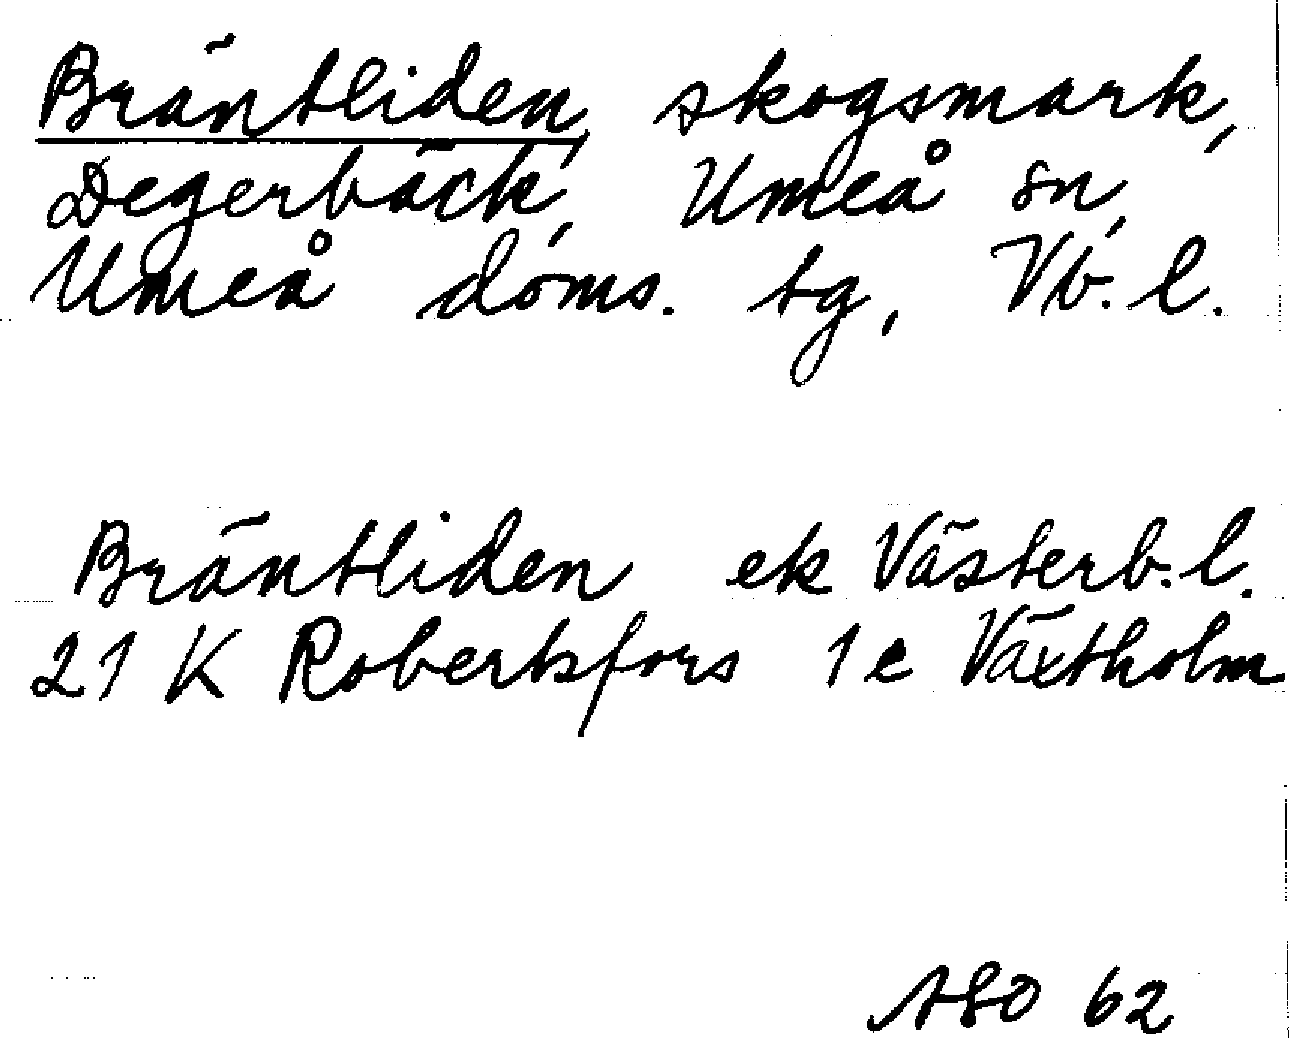 Bräntliden, skogsmark,
Degerbäck, Umeå sn,
Umeå doms. tg, Vb. l.
Bräntliden ek Västerb. l.
21 K Robertsfors 1 c Växtholm
ASO 62